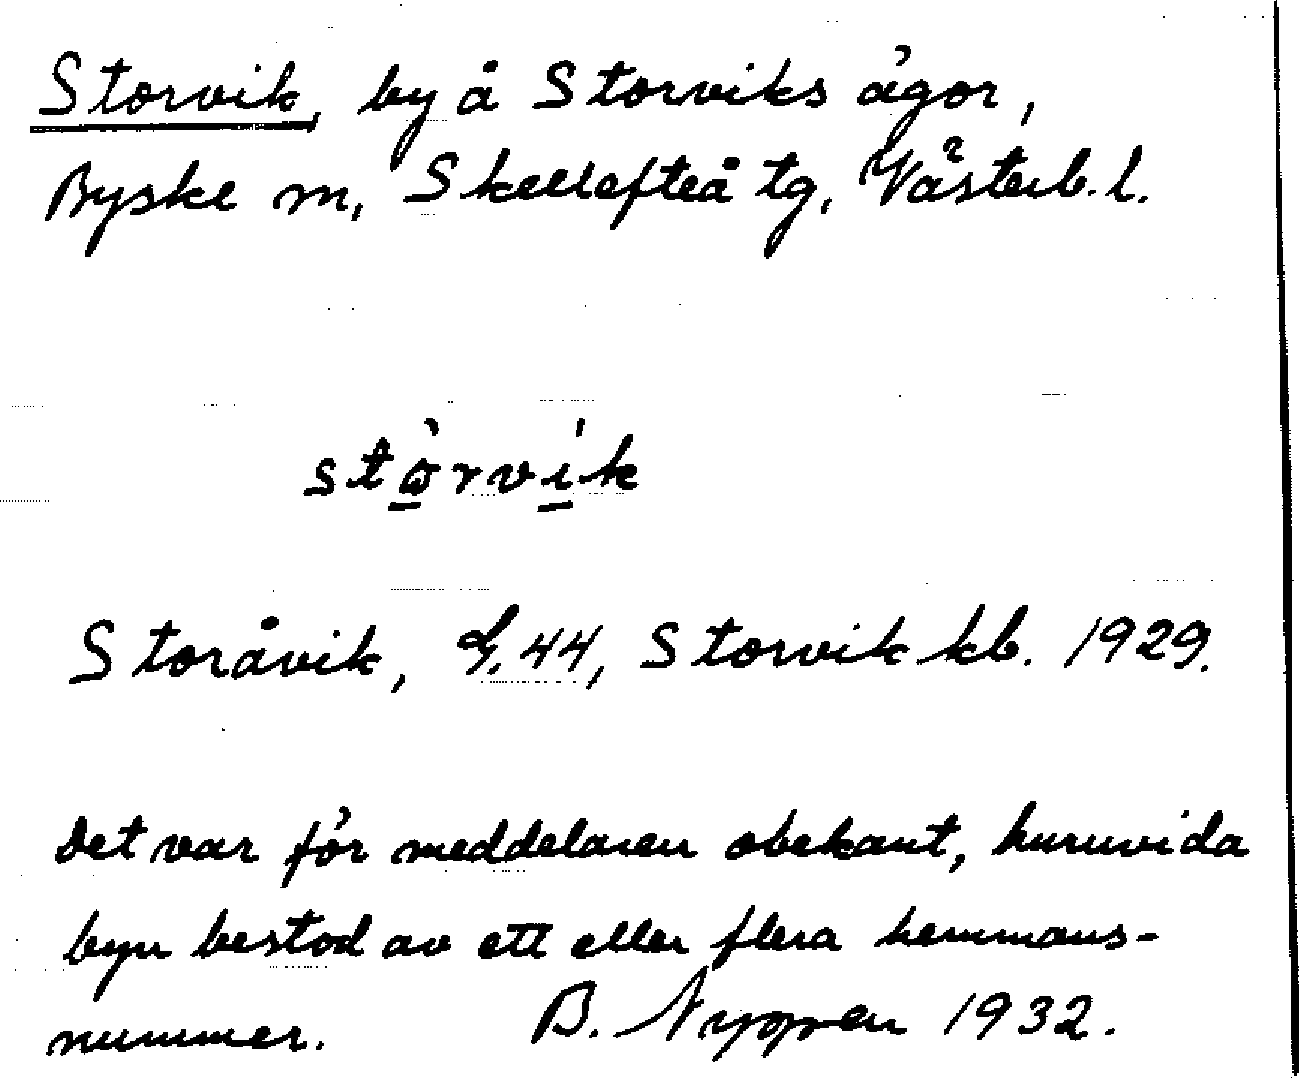 Storvik, by å Storviks ägor,
Byske sn, Skellefteå tg, Västerb. l.
stòrvík
Storåvik, G. 44, Storvik kb. 1929.
Det var för meddelaren obekant, huruvida
byn bestod av ett eller flera hemmans-
nummer. B. Nyppen 1932.